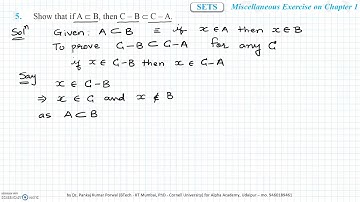 SETS Miscellaneous Exercise on Chapter 1
5. Show that if A ⊂ B, then C – B ⊂ C – A.
Solⁿ Given: A ⊂ B ≡ if x ∈ A then x ∈ B
To prove C-B ⊂ C-A for any C
if x ∈ C-B then x ∈ C-A
Say x ∈ C-B
⇒ x ∈ C and x ∉ B
as A ⊂ B
by Dr. Pankaj Kumar Porwal (BTech - IIT Mumbai, PhD - Cornell University) for Alpha Academy, Udaipur – mo. 9460189461